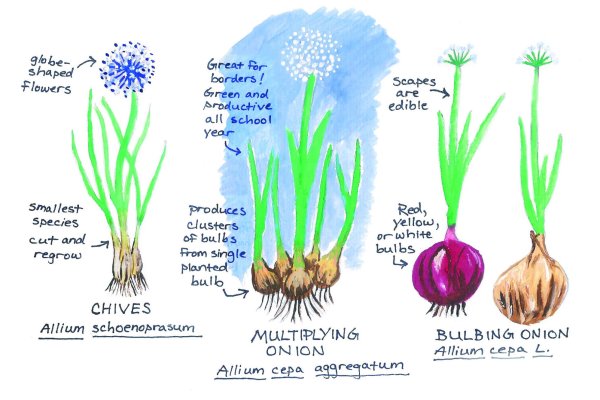 globe-
shaped
flowers
smallest
species
cut and
regrow
CHIVES
Allium schoenoprasum
Great for
borders!
Green and
productive
all school
year
produces
clusters
of bulbs
from single
planted
bulb
MULTIPLYING
ONION
Allium cepa aggregatum
scapes
are
edible
Red,
yellow,
or white
bulbs
BULBING ONION
Allium cepa L.